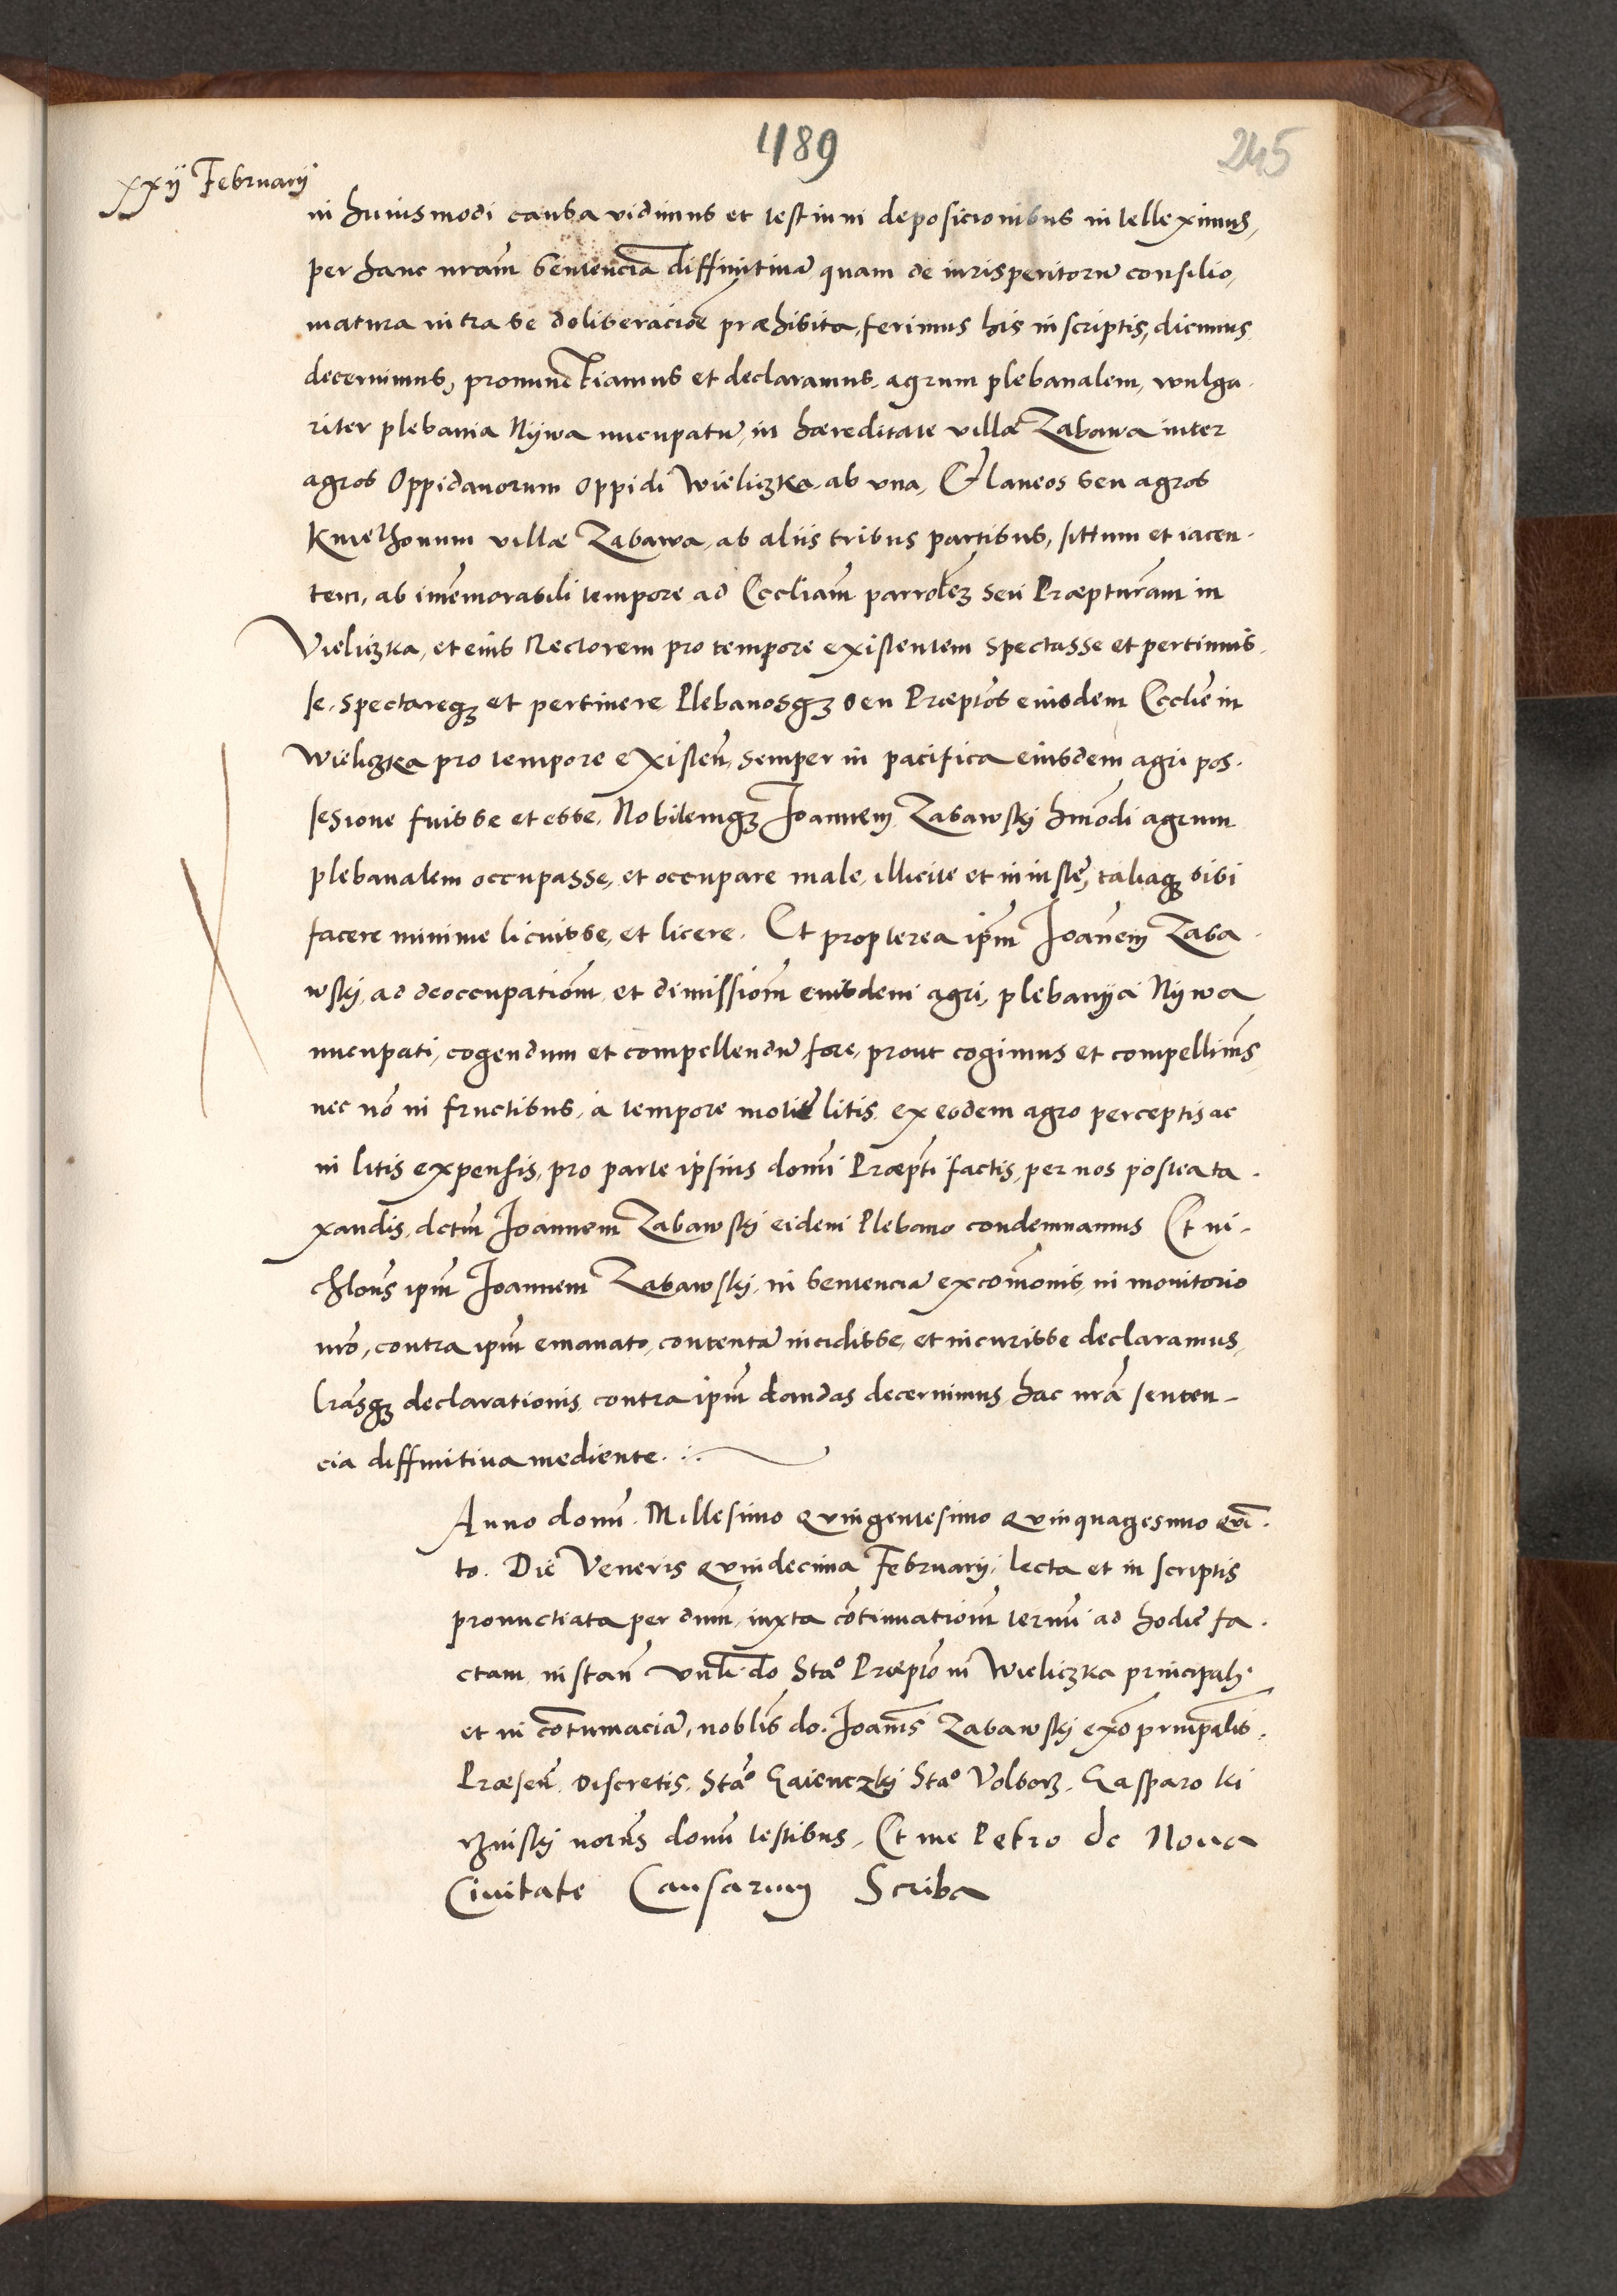 1189
245
xxij Februarij
in huiusmodi causa vidimus et testium deposicionibus intelleximus,
per hanc nram̃ sentenciã diffinitiuã quam de iurisperitorũ consilio,
matura intra se deliberacioẽ præhibita, ferimus his in scriptis, dicimus
decernimus, pronunctiamus et declaramus, agrum plebanalem, wulga-
riter plebania Nijwa nucupatũ, in hæreditate villæ Zabawa inter
agros Oppidanorum Oppidi Wieliczka, ab vna, Et laneos seu agros
Kmethonum villæ Zabawa, ab aliis tribus partibus, situm et iacen-
tem, ab imẽmorabili tempore ad Eccliam̃ parrolẽꝫ seu Præpturam̃ in
Vieliczka, et eius Rectorem pro tempore existentem spectasse et pertinuis-
se, spectareqꝫ et pertinere Plebanosqꝫ seu Præptõs eiusdem Ecclie in
Wieliczka pro tempore existeñ, semper in pacifica eiusdem agri pos-
sesione fuisse et esse, Nobilemqꝫ Joannem Zabawskj hmõdi agrum
plebanalem occupasse, et occupare male, illicite et iniustẽ, taliaqꝫ sibi
facere minime licuisse, et licere. Et propterea ipm̃ Joañem Zaba-
wskj, ad deoccupationm̃, et dimissionm̃ eiusdem agri, plebanija Nijwa
nucupati, cogendum et compellendũ fore, prout cogimus et compellims̃,
nec nõ in fructibus, a tempore motæ litis, ex eodem agro perceptis ac
in litis expensis, pro parte ipsius domi̇̃ Præpti̇̃ factis, per nos postea ta-
xandis, dctm̃ Joannem Zabawskj eidem Plebano condemnamus Et ni-
chlons̃ ipm̃ Joannem Zabawskj, in sentenciã excomõnis, in monitorio
nrõ, contra ipm̃ emanato, contentã incidisse, et incurisse declaramus,
Lrãsqꝫ declarationis contra ipm̃ dandas decernimus, hac nrã senten-
cia diffinitiua mediente.
Anno domi̇̃. Millesimo Quingentesimo Quinquagesimo Qui̇̃-
to. Die Veneris Quindecima Februarij, lecta et in scriptis
pronuctiata per dnm̃, iuxta cõtinuationm̃ termi̇̃ ad hodiẽ fa-
ctam, instañ Vnli̇̃ do Stão Præptõ in Wieliczka principalj
et in cõtumaciã, noblis̃ do. Joanis̃ Zabawskj exõ prncipalis.
Præseñ. Discretis. Stão Gaienczkj Stão Volborz, Gasparo Ki
rzniskj norũs domi̇̃ testibus, Et me Petro de Noua
Ciuitate Causarum Scriba